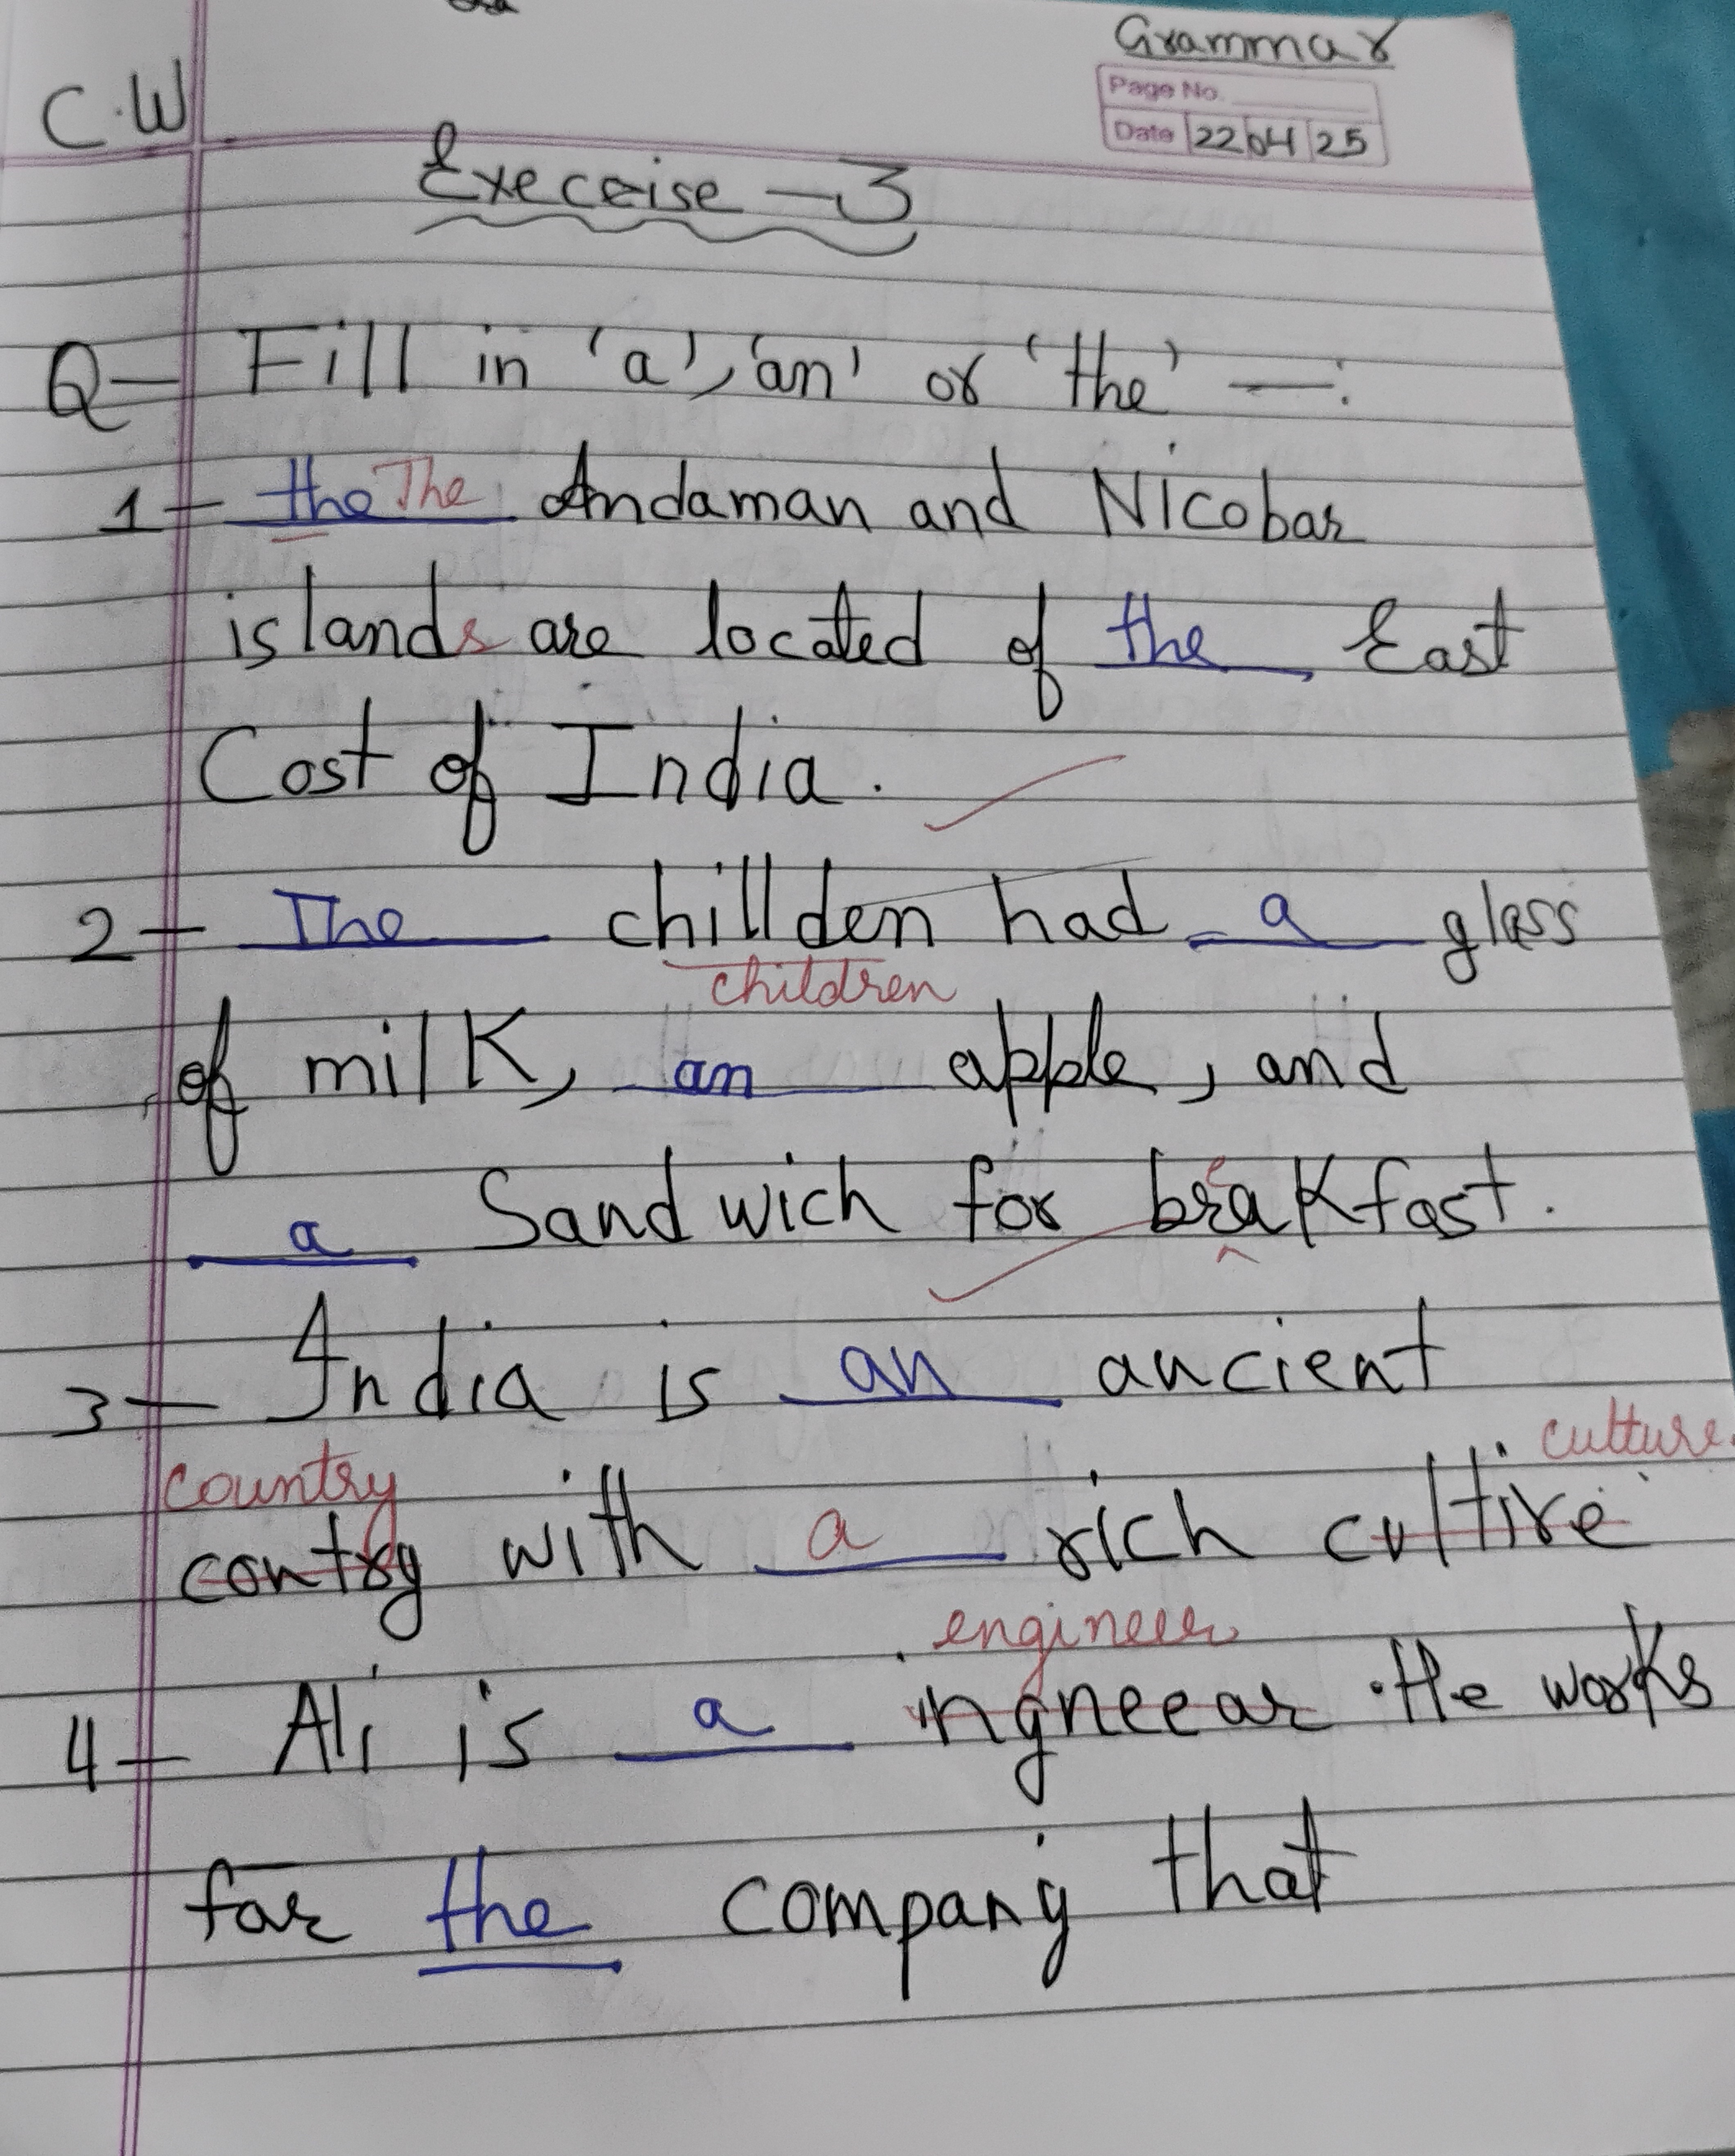 Grammar
Page No.
Date 22 04 25
C.W
Execcise - 3
Q- Fill in 'a', 'an' or 'the' -:
1- the The Andaman and Nicobar
islands are located of the East
Cost of India.
2- The chillden had a glass
children
of milk, an apple, and
a Sandwich for breakfast.
3- India is an ancient
country culture.
contry with a rich cultire
engineer
4- Ali is a ingneear. He works
for the company that